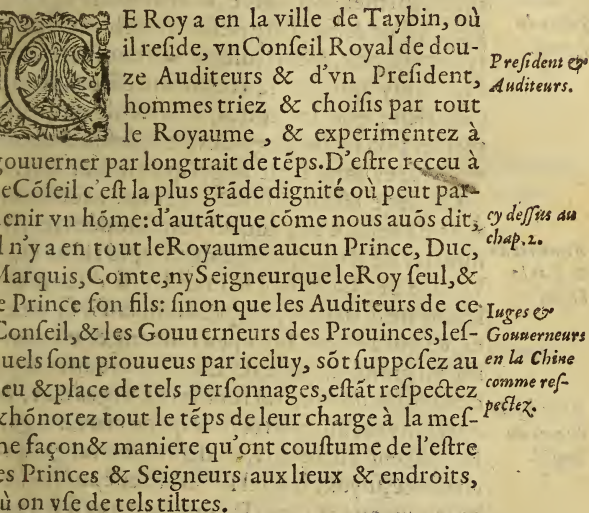 CE Roy a en la ville de Taybin, où
il reſide, vn Conſeil Royal de dou-
ze Auditeurs & d'vn Preſident,
hommes triez & choiſis par tout
le Royaume, & experimentez à
gouuerner par long trait de tẽps. D'eſtre receu à
ce Cõſeil c'eſt la plus grãde dignité où peut par-
uenir vn hõme: d'autãt que cõme nous auõs dit,
il n'y a en tout le Royaume aucun Prince, Duc,
Marquis, Comte, ny Seigneur que le Roy ſeul, &
le Prince ſon fils: ſinon que les Auditeurs de ce
Conſeil, & les Gouuerneurs des Prouinces, leſ-
quels ſont prouueus par iceluy, sõt ſuppoſez au
lieu & place de tels perſonnages, eſtãt reſpectez
& hõnorez tout le tẽps de leur charge à la meſ-
me façon & maniere qu'ont couſtume de l'eſtre
les Princes & Seigneurs aux lieux & endroits,
où on vſe de tels tiltres.
Preſident &
Auditeurs.
cy deſſus au
chap. 2.
Iuges &
Gouuerneurs
en la Chine
comme reſ-
pectez.